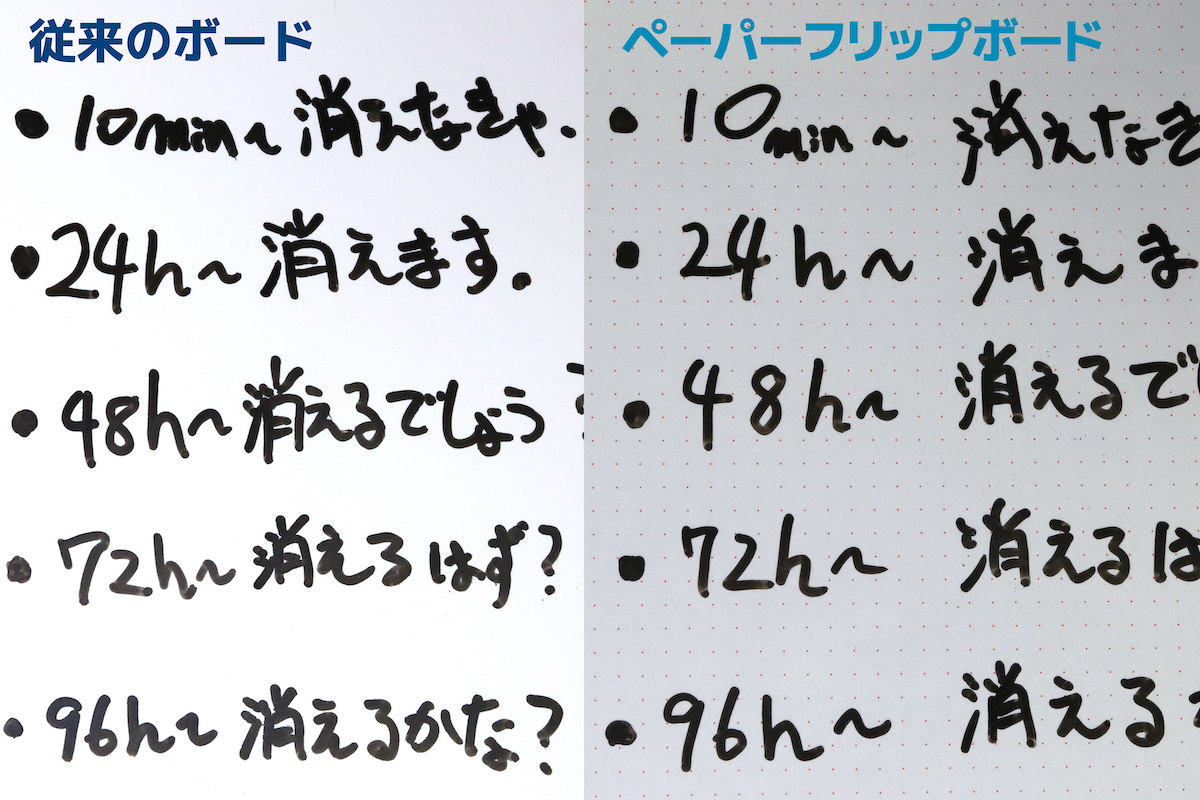 従来のボード
• 10min~ 消えなきゃ.
• 24h~ 消えます.
• 48h~ 消えるでしょう?
• 72h~ 消えるはず?
• 96h~ 消えるかな?
ペーパーフリップボード
• 10min~ 消えなき
• 24h~ 消えま
• 48h~ 消えるで
• 72h~ 消えるは
• 96h~ 消える